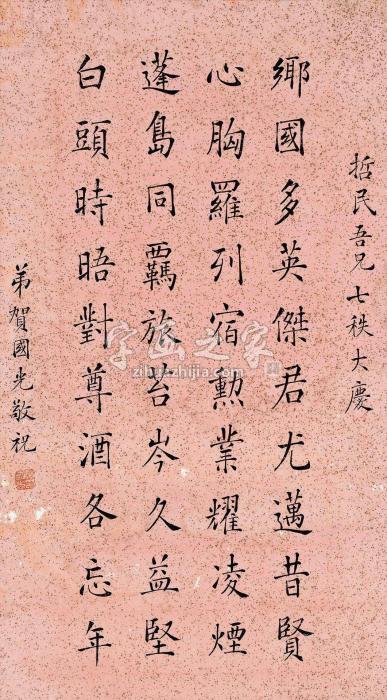 哲民吾兄七秩大慶
鄉國多英傑君尤邁昔賢
心胸羅列宿勲業耀凌煙
蓬島同羈旅苔岑久益堅
白頭時晤對尊酒各忘年
弟賀國光敬祝
字画之家
zihuazhijia.com